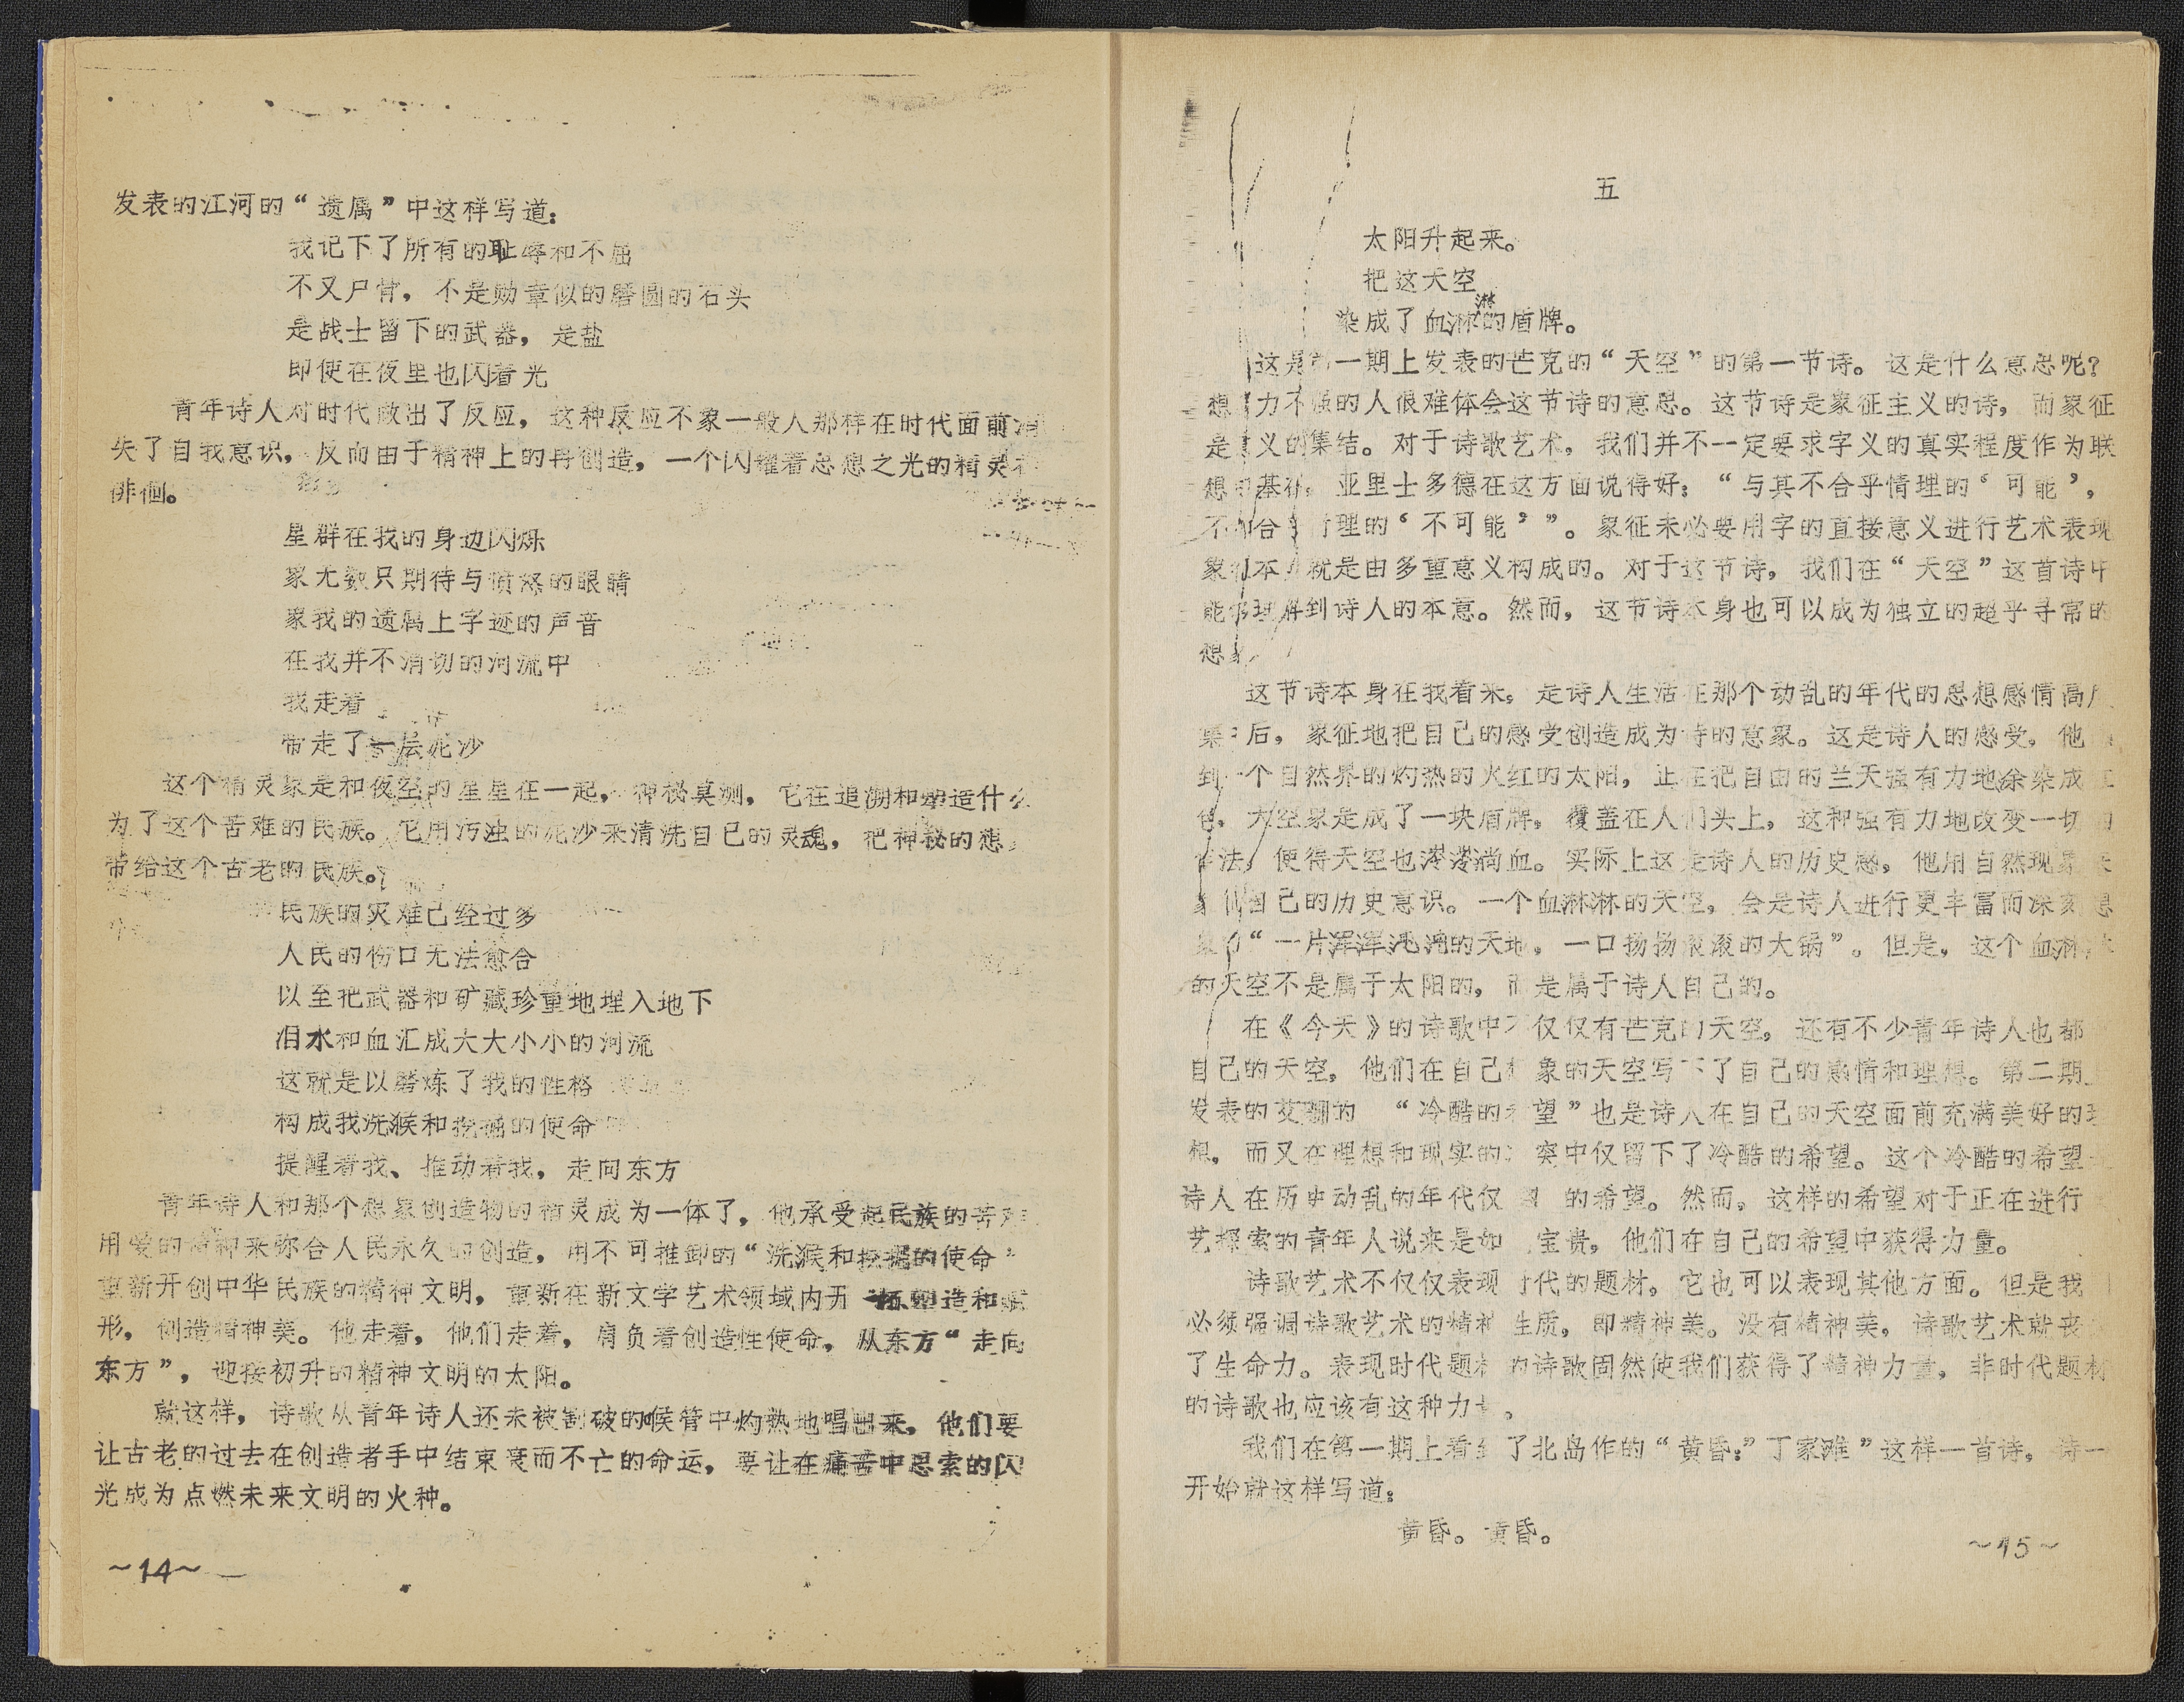 发表的江河的“遗属”中这样写道：
我记下了所有的耻辱和不屈
不又尸骨，不是勋章似的磨圆的石头
是战士留下的武器，是盐
即使在夜里也闪着光
青年诗人对时代做出了反应，这种反应不象一般人那样在时代面前
失了自我意识，反而由于精神上的再创造，一个闪耀着思想之光的精灵在
徘徊。
星群在我的身边闪烁
象无数只期待与愤怒的眼睛
象我的遗属上字迹的声音
在我并不清切的河流中
我走着
带走了一层泥沙
这个精灵象是和夜空的星星在一起，神秘莫测，它在追溯和塑造什么
为了这个苦难的民族。它用污浊的泥沙来清洗自己的灵魂，把神秘的想
带给这个古老的民族。
民族的灾难已经过多
人民的伤口无法愈合
以至把武器和矿藏珍重地埋入地下
泪水和血汇成大大小小的河流
这就是以磨炼了我的性格
构成我洗濯和挖掘的使命
提醒着我、推动着我，走向东方
青年诗人和那个想象创造物的精灵成为一体了，他承受起民族的苦难
用爱的精神来弥合人民永久的创造，用不可推卸的“洗濯和挖掘的使命”
重新开创中华民族的精神文明，重新在新文学艺术领域内开拓塑造和赋
形，创造精神美。他走着，他们走着，肩负着创造性使命，从东方“走向
东方”，迎接初升的精神文明的太阳。
就这样，诗歌从青年诗人还未被割破的喉管中灼热地唱出来，他们要
让古老的过去在创造者手中结束衰而不亡的命运，要让在痛苦中思索的闪
光成为点燃未来文明的火种。
～14～
五
太阳升起来。
把这天空
染成了血淋淋的盾牌。
这是第一期上发表的芒克的“天空”的第一节诗。这是什么意思呢？
想 力不强的人很难体会这节诗的意思。这节诗是象征主义的诗，而象征
是意义的集结。对于诗歌艺术，我们并不一定要求字义的真实程度作为联
想的基础，亚里士多德在这方面说得好：“与其不合乎情理的‘可能’，
不如合乎情理的‘不可能’”。象征未必要用字的直接意义进行艺术表现
象征本身就是由多重意义构成的。对于这节诗，我们在“天空”这首诗中
能够理解到诗人的本意。然而，这节诗本身也可以成为独立的超乎寻常的
想象。
这节诗本身在我看来，是诗人生活在那个动乱的年代的思想感情高度
集中后，象征地把自己的感受创造成为诗的意象。这是诗人的感受，他
到一个自然界的灼热的火红的太阳，正在把自由的兰天强有力地涂染成红
色，天空象是成了一块盾牌，覆盖在人们头上，这种强有力地改变一切的
作法，使得天空也涔涔淌血。实际上这是诗人的历史感，他用自然现象来
象征自己的历史意识。一个血淋淋的天空，会是诗人进行更丰富而深刻想
象的“一片浑浑沌沌的天地，一口扬扬滚滚的大锅”。但是，这个血淋淋
的天空不是属于太阳的，而是属于诗人自己的。
在《今天》的诗歌中不仅仅有芒克的天空，还有不少青年诗人也都
自己的天空，他们在自己想象的天空写下了自己的感情和理想。第二期上
发表的艾珊的 “冷酷的希望”也是诗人在自己的天空面前充满美好的理
想，而又在理想和现实的冲突中仅留下了冷酷的希望。这个冷酷的希望
诗人在历史动乱的年代仅 的希望。然而。这样的希望对于正在进行
艺探索的青年人说来是如 宝贵，他们在自己的希望中获得力量。
诗歌艺术不仅仅表现时代的题材，它也可以表现其他方面。但是我
必须强调诗歌艺术的精神性质，即精神美。没有精神美，诗歌艺术就丧
了生命力。表现时代题材的诗歌固然使我们获得了精神力量，非时代题材
的诗歌也应该有这种力量。
我们在第一期上看到了北岛作的“黄昏：”丁家滩”这样一首诗，诗一
开始就这样写道：
黄昏。黄昏。
～15～